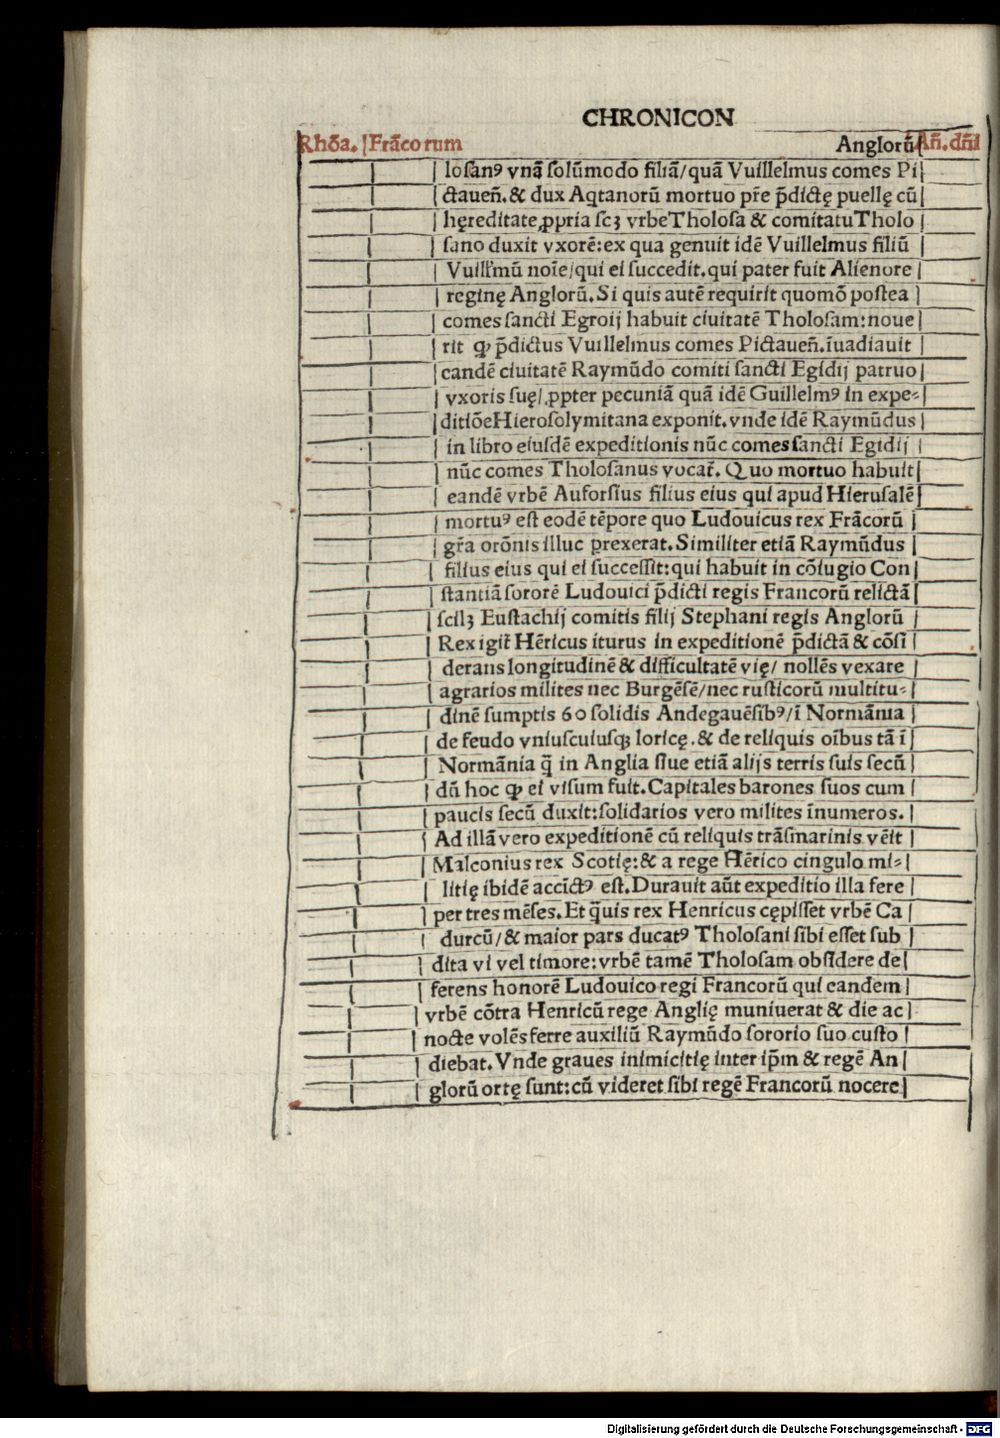 CHRONICON
Rhõa. Frãcorum Anglorũ Añ. dñi
losanꝰ vnã solũmodo filiã/quã Vuillelmus comes Pi
ctaueñ. & dux Aqtanorũ mortuo p̃re p̃dictę puellę cũ
hęreditate ꝓpria scꝫ vrbe Tholosa & comitatu Tholo
sano duxit vxorẽ: ex qua genuit idẽ Vuillelmus filiũ
Vuill'mũ noĩe/qui ei succedit. qui pater fuit Alienore
reginę Anglorũ. Si quis autẽ requirit quomõ postea
comes sancti Egroij habuit ciuitatẽ Tholosam: noue
rit ꝙ p̃dictus Vuillelmus comes Pictaueñ. ĩuadiauit
candẽ ciuitatẽ Raymũdo comiti sancti Egidij patruo
vxoris suę/ ꝓpter pecuniã quã idẽ Guillelmꝰ in expe⸗
ditiõe Hierosolymitana exponit. vnde idẽ Raymũdus
in libro eiusdẽ expeditionis nũc comes sancti Egidij
nũc comes Tholosanus vocat̃. Quo mortuo habuit
eandẽ vrbẽ Auforsius filius eius qui apud Hierusalẽ
mortuꝰ est eodẽ tẽpore quo Ludouicus rex Frãcorũ
gr̃a orõnis illuc ꝑrexerat. Similiter etiã Raymũdus
filius eius qui ei successit: qui habuit in cõiugio Con
stantiã sororẽ Ludouici p̃dicti regis Francorũ relictã
scilꝫ Eustachij comitis filij Stephani regis Anglorũ
Rex igit̃ Hẽricus iturus in expeditionẽ p̃dictã & cõsi
derans longitudinẽ & difficultatẽ vię/ nollẽs vexare
agrarios milites nec Burgẽsẽ/nec rusticorũ multitu⸗
dinẽ sumptis 60 solidis Andegauẽsibꝰ/ĩ Normãnia
de feudo vniuscuiusqꝫ loricę. & de reliquis oĩbus tã ĩ
Normãnia q̃ in Anglia siue etiã alijs terris suis secũ
dũ hoc ꝙ ei visum fuit. Capitales barones suos cum
paucis secũ duxit: solidarios vero milites ĩnumeros.
Ad illã vero expeditionẽ cũ reliquis trãsmarinis vẽit
Malconius rex Scotię: & a rege Hẽrico cingulo mi⸗
litię ibidẽ accĩctꝰ est. Durauit aũt expeditio illa fere
per tres mẽses. Et q̃uis rex Henricus cępisset vrbẽ Ca
durcũ/ & maior pars ducatꝰ Tholosani sibi esset sub
dita vi vel timore: vrbẽ tamẽ Tholosam obsĩdere de
ferens honorẽ Ludouico regi Francorũ qui eandem
vrbẽ cõtra Henricũ rege Anglię muniuerat & die ac
nocte volẽs ferre auxiliũ Raymũdo sororio suo custo
diebat. Vnde graues inimicitię inter ip̃m & regẽ An
glorũ ortę sunt: cũ videret sibi regẽ Francorũ nocere
Digitalisierung gefördert durch die Deutsche Forschungsgemeinschaft - DFG